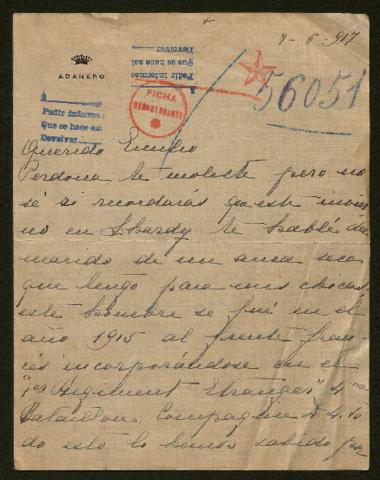 7-6-917
ADANERO
Pedir informes
Que se hace así
Devolver
A
Pedir informes
Que se hace así
Devolver
FICHA
56051
Querido Emilio
Perdona te moleste pero no
sé si recordarás que este invier
no en te hablé del
marido de un ama seca
que tengo para mis chicos
este hombre se fué en el
año 1915 al frente fran
cés incorporándose en el
"1er Regiment Etranger" 4
Bataillon Compagnie to
do esto lo hemos sabido por